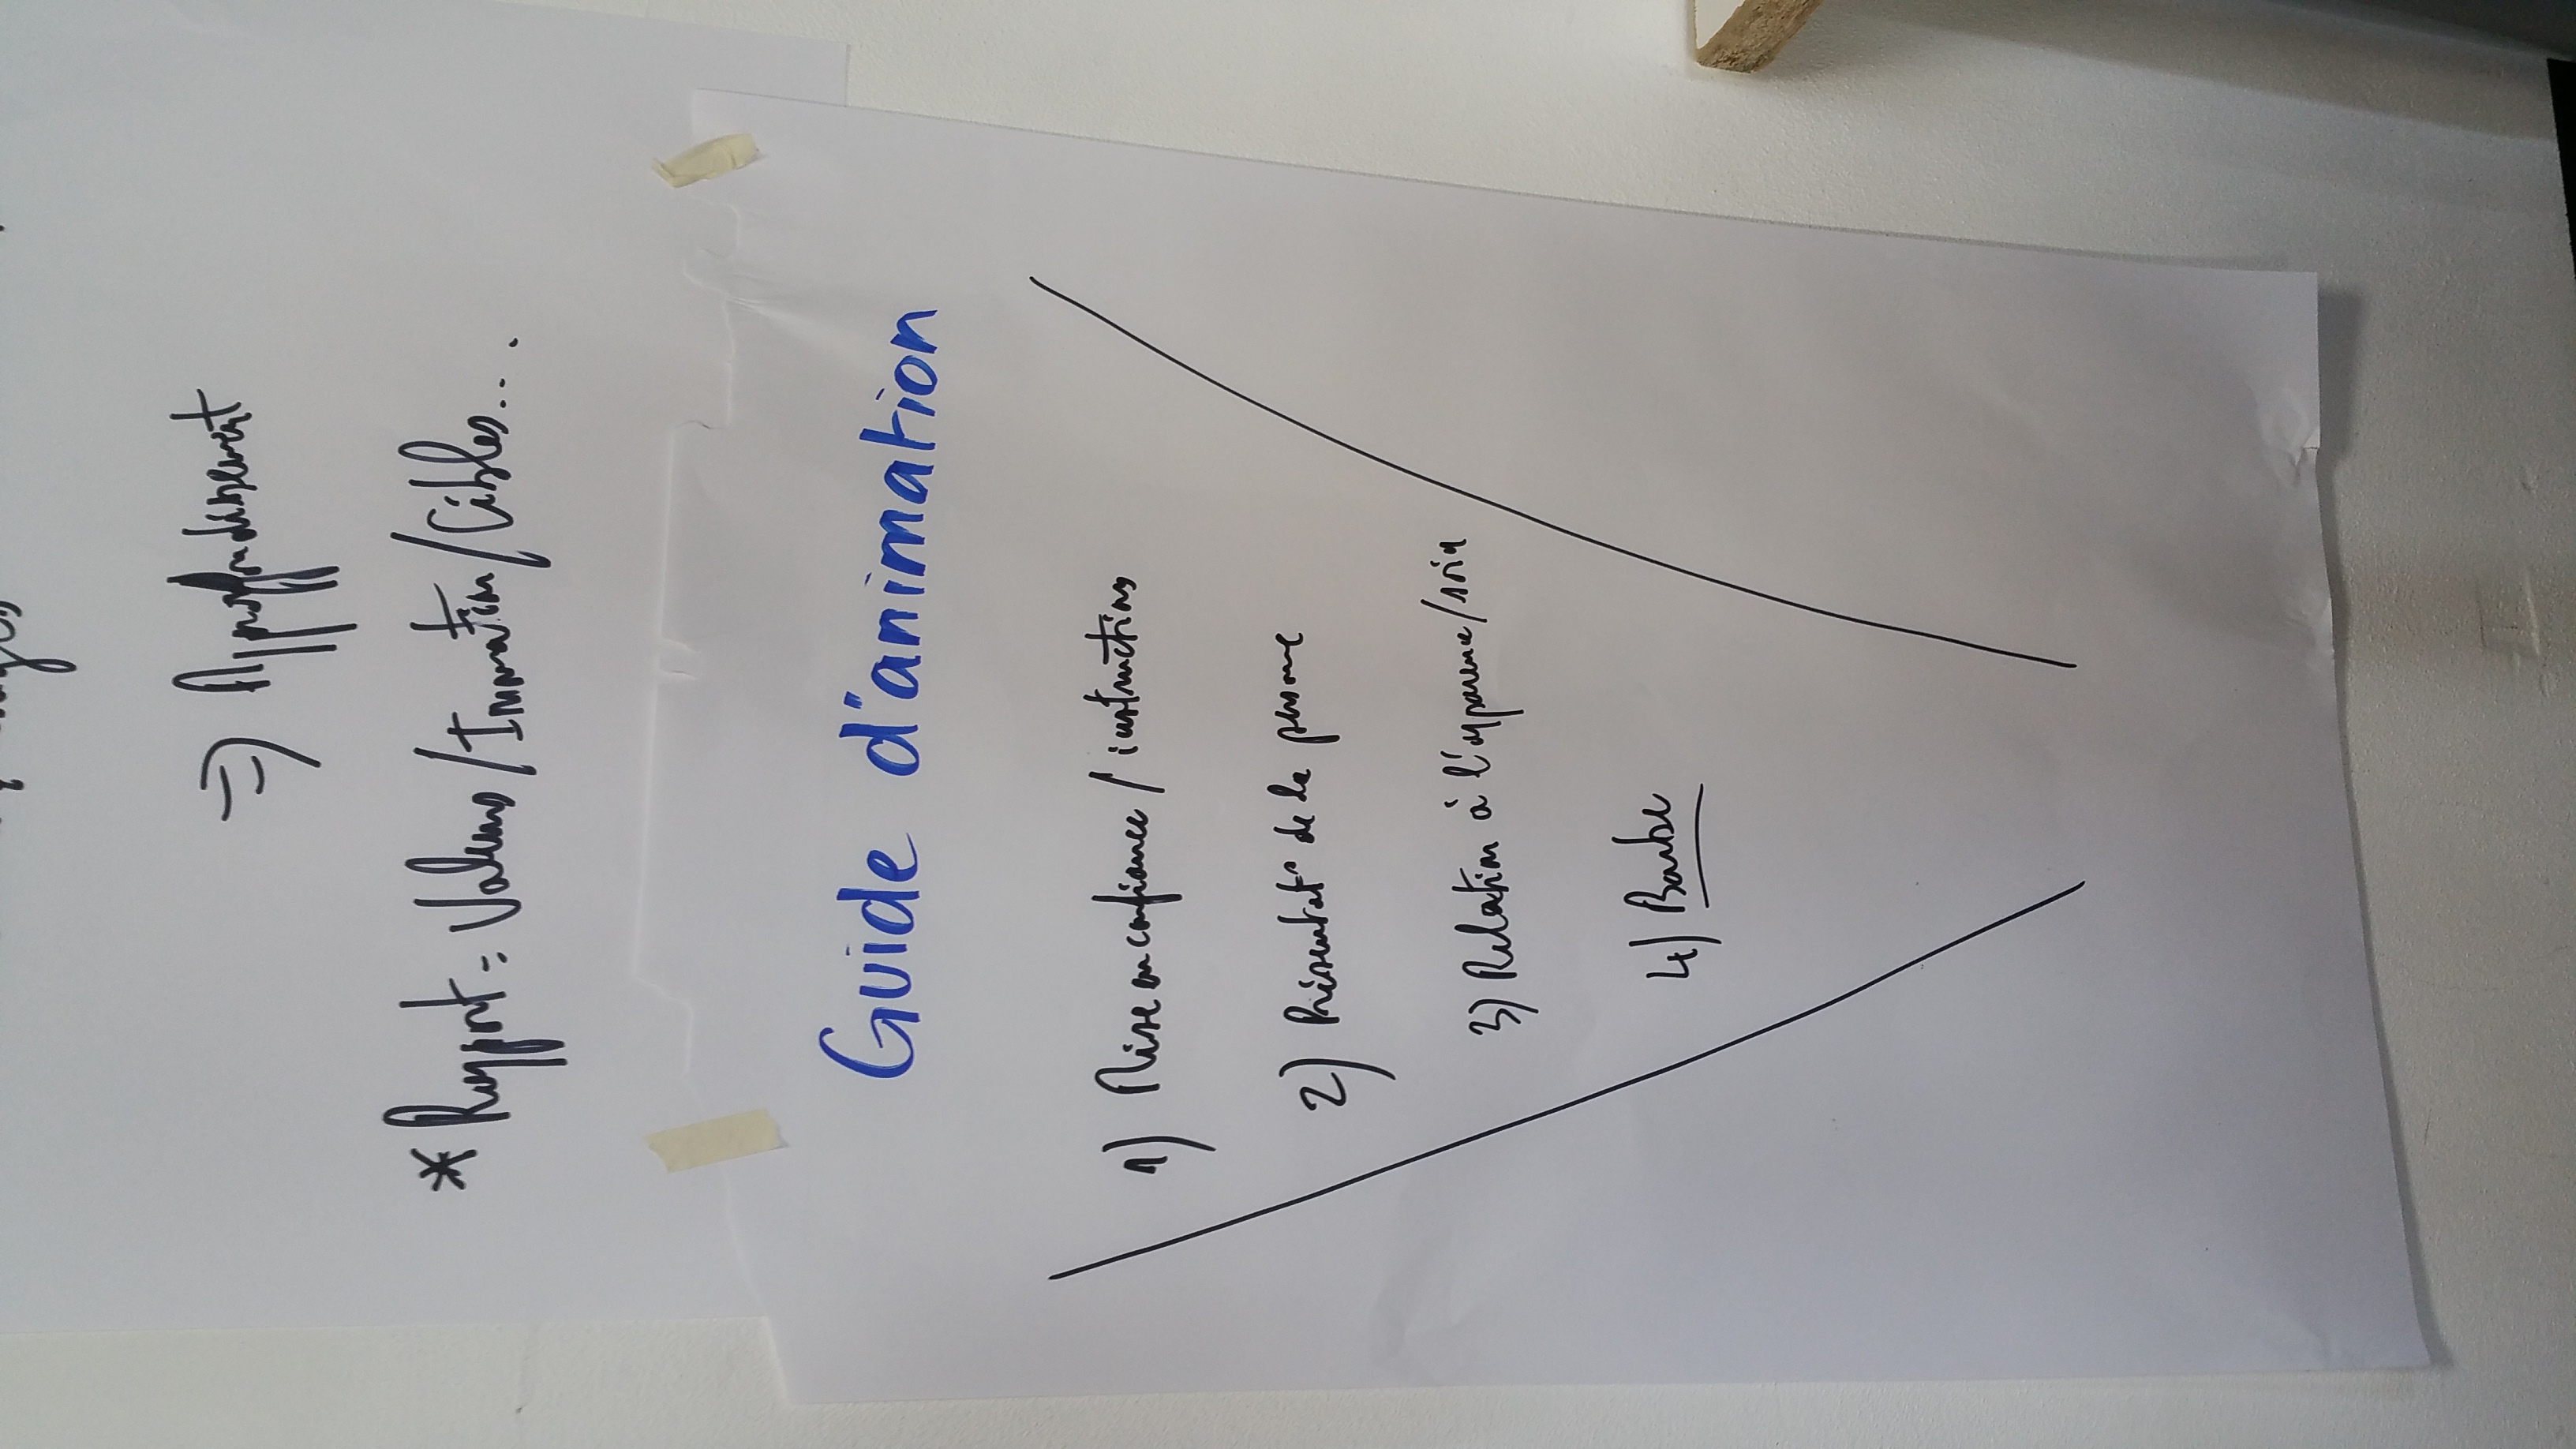 =) Approfondissement
* Rapport = Valeurs / Innovation / Cibles....
Guide d'animation
1) Mise en confiance / instructions
2) Présentat° de la personne
3) Relation à l'apparence / soin
4) Barbe